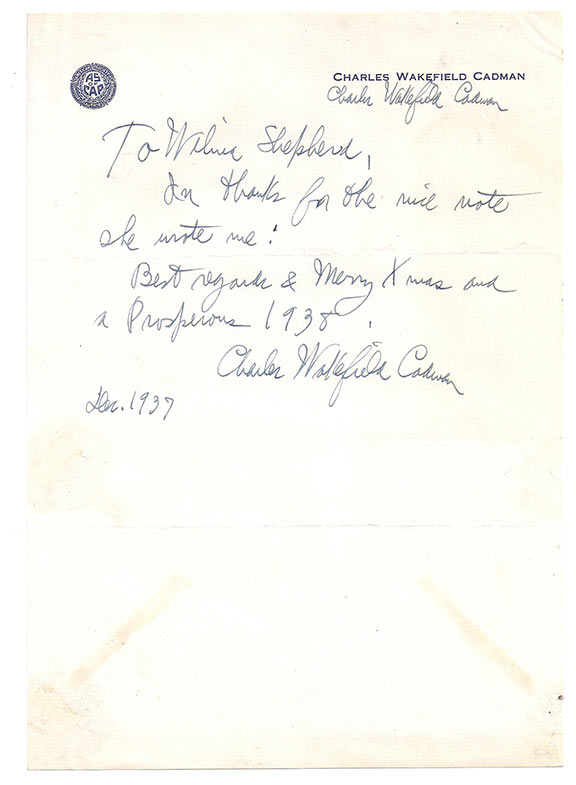 AS
OF
CAP
CHARLES WAKEFIELD CADMAN
Charles Wakefield Cadman
To Wilma Shepherd,
In thanks for the nice note
she wrote me!
Best regards & Merry Xmas and
a Prosperous 1938.
Charles Wakefield Cadman
Dec. 1937